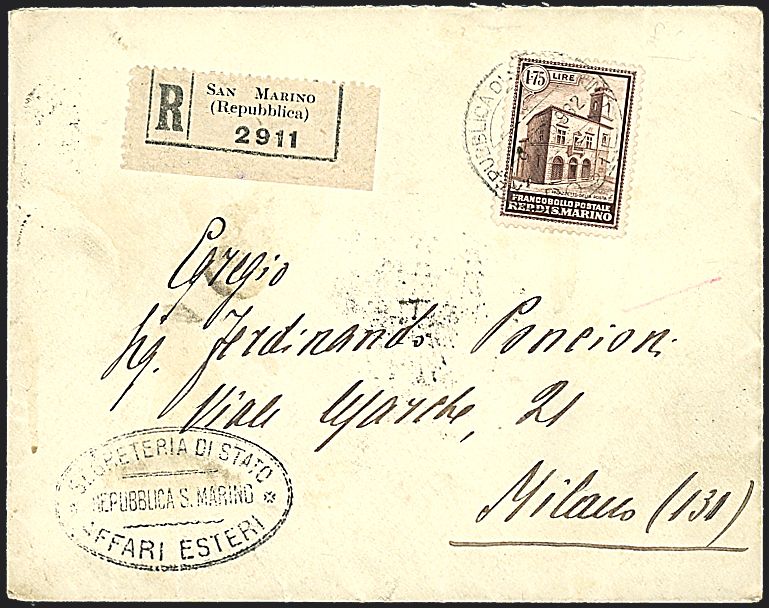 R
SAN MARINO
(Repubblica)
2911
1·75 LIRE
FRANCOBOLLO POSTALE
REP. DI S. MARINO
REPUBBLICA DI
Egregio
Sig. Ferdinando Poncioni
Viale Marche, 21
Milano (131)
SEGRETERIA DI STATO
REPUBBLICA S. MARINO
AFFARI ESTERI